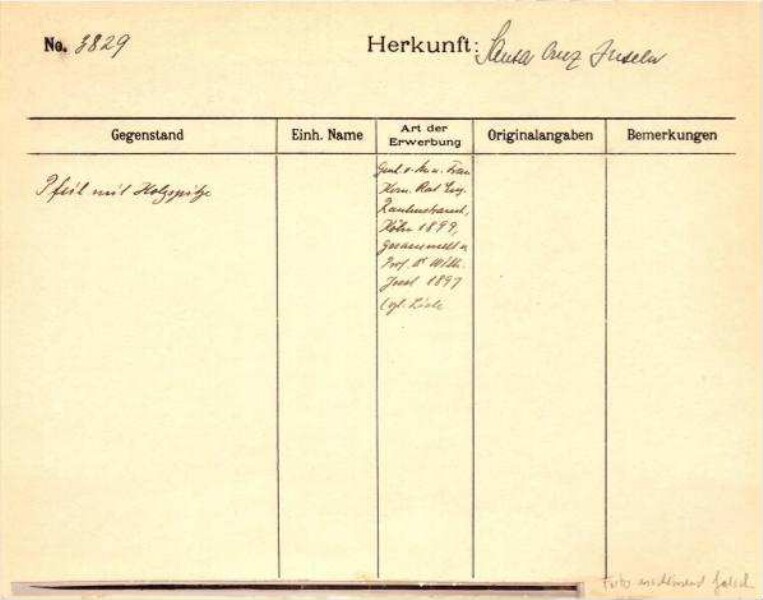 No. 3829
Herkunft: Santa Cruz Inseln
Gegenstand
Einh. Name
Art der
Erwerbung
Originalangaben
Bemerkungen
Pfeil mit Holzspitze
Gesch. v. Frau
Kom. Rat Eug.
Rautenstrauch,
Köln 1899,
gesammelt v.
Prof. Dr Wilh.
Joest 1897
(vgl. Liste
Foto anscheinend falsch